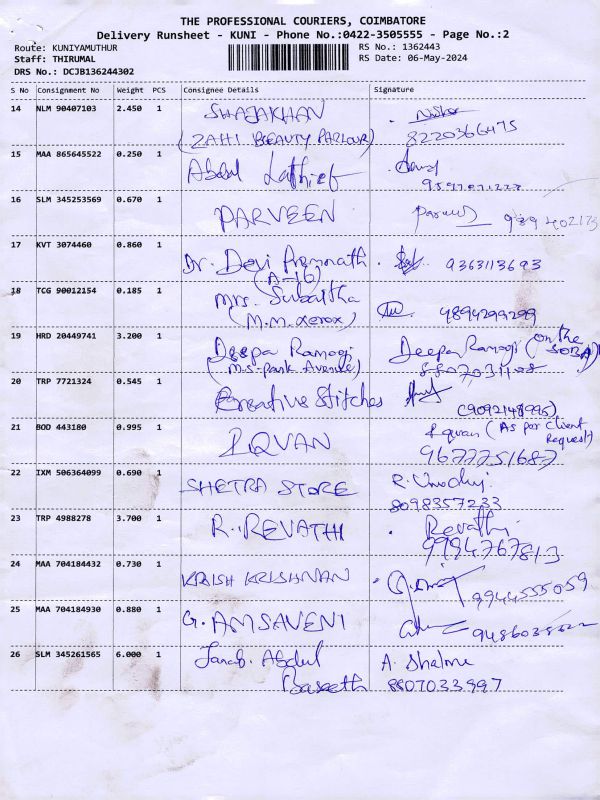 THE PROFESSIONAL COURIERS, COIMBATORE
Delivery Runsheet - KUNI - Phone No.:0422-3505555 - Page No.:2
Route: KUNIYAMUTHUR
RS No.: 1362443
Staff: THIRUMAL
RS Date: 06-May-2024
DRS No.: DCJB136244302
S No Consignment No Weight PCS Consignee Details Signature
14 NLM 90407103 2.450 1 SHAJAKHAN
(ZAHI BEAUTY PARLOUR) 8220366475
15 MAA 865645522 0.250 1 Abdul Lathief
16 SLM 345253569 0.670 1 PARVEEN Parveen
17 KVT 3074460 0.860 1 Dr. Devi Premnath 9363113693
(A-16)
18 TCG 90012154 0.185 1 Mrs. Subaitha
(M.M. Xerox) 9894299299
19 HRD 20449741 3.200 1 Deepa Ramogi Deepa Ramogi (on the SOBA)
(M.S. Park Avenue)
20 TRP 7721324 0.545 1 Creative Stitches
(9092148995)
21 BOD 443180 0.995 1 IQVAN Iqvan (As per client Request)
9677751687
22 IXM 506364099 0.690 1 SHETRA STORE R.
8098357233
23 TRP 4988278 3.700 1 R. REVATHI Revathi
9994767813
24 MAA 704184432 0.730 1 KRISH KRISHNAN 9944555059
25 MAA 704184930 0.880 1 G. AMSAVENI
26 SLM 345261565 6.000 1 Janab. Abdul A. Shalme
Baseeth 8807033997